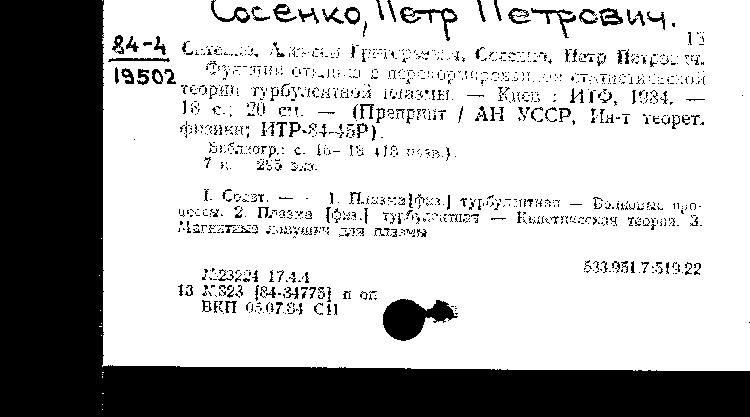 Сосенко, Петр Петрович.
13
84-4
19502
Ситенко, Алексей Григорьевич, Сосенко, Петр Петрович.
Функции отклика в перенормированной статистической
теории турбулентной плазмы. — Киев : ИТФ, 1984. —
18 с.; 20 см. — (Препринт / АН УССР, Ин-т теорет.
физики; ИТР-84-45Р).
Библиогр.: с. 16— 18 (18 назв.).
7 к. 285 экз.
I. Соавт. — — 1. Плазма [физ.] турбулентная — Волновые про-
цессы. 2. Плазма [физ.] турбулентная — Кинетическая теория. 3.
Магнитные ловушки для плазмы
533.951.7:519.22
№23224 17.4.4
13 №823 [84-34775] п оп
ВКП 05.07.84 С11